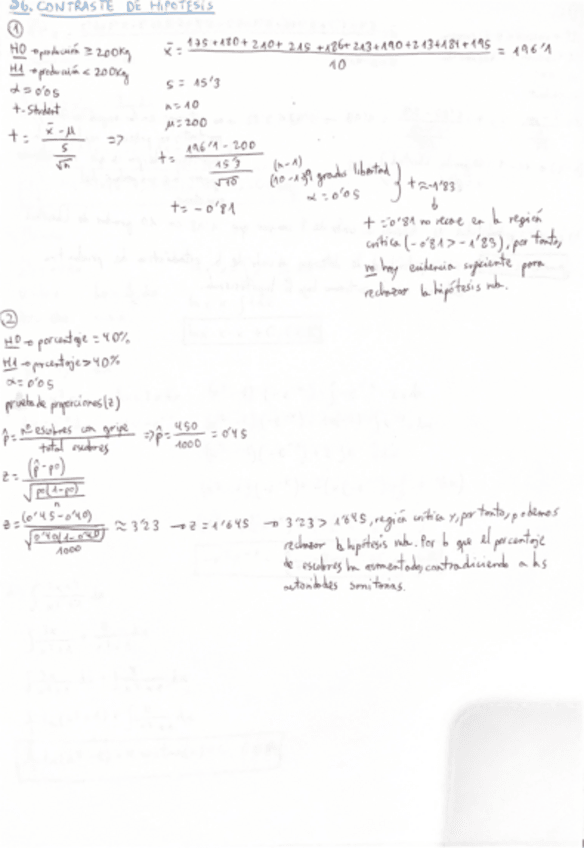 S6. CONTRASTE DE HIPÓTESIS
①
H0 → producción ≥ 200Kg
H1 → producción < 200Kg
α = 0'05
t-Student
t = x̄ - μ / s/√n ⇒
x̄ = 175+180+210+215+186+213+190+213+184+195 / 10 = 196'1
s = 15'3
n = 10
μ = 200
t = 196'1 - 200 / 15'3/√10
t = -0'81
(n-1)
(10-1)9 grados libertad
α = 0'05
t ≈ -1'83
t = -0'81 no recae en la región
crítica (-0'81 > -1'83), por tanto,
no hay evidencia suficiente para
rechazar la hipótesis nula.
②
H0 → porcentaje = 40%
H1 → porcentaje > 40%
α = 0'05
prueba de proporciones (z)
p̂ = nº escolares con gripe / total escolares ⇒ p̂ = 450/1000 = 0'45
z = (p̂ - p0) / √p0(1-p0)/n
z = (0'45 - 0'40) / √0'40(1-0'40)/1000 ≈ 3'23 → z = 1'645 → 3'23 > 1'645, región crítica y, por tanto, podemos
rechazar la hipótesis nula. Por lo que el porcentaje
de escolares ha aumentado, contradiciendo a las
autoridades sanitarias.